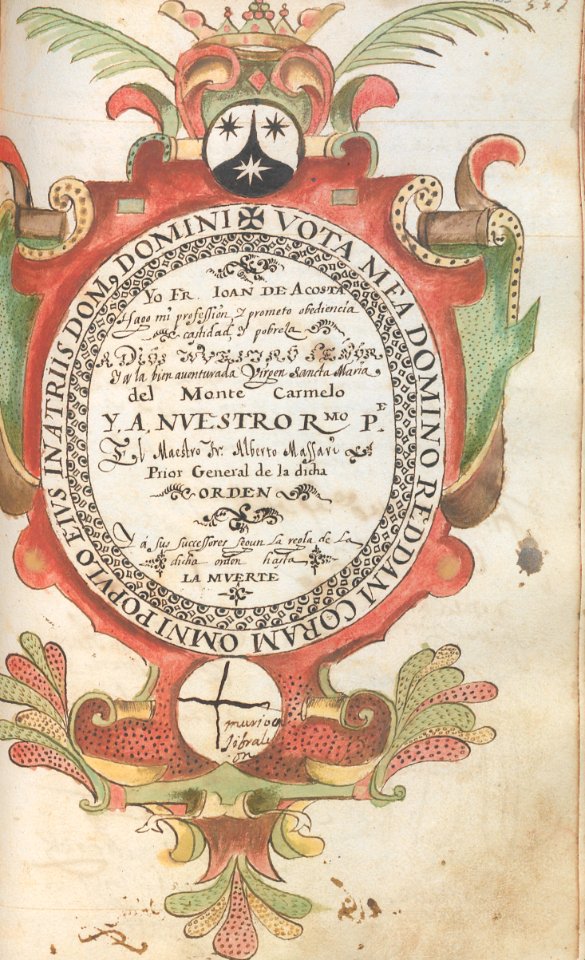 ✠ VOTA MEA DOMINO REDDAM CORAM OMNI POPVLO EIVS IN ATRIIS DOM, DOMINI
Yo Fr. Ioan de Acosta
Hago mi profession y prometo obediencia
castidad y pobreza
A DIOS NVESTRO SEÑOR
Y a la bien aventurada Virgen Sancta Maria
del Monte Carmelo
Y. A. NVESTRO R.MO P.E
El Maestro Fr. Alberto Massari
Prior General de la dicha
ORDEN
Y á sus successores segun la regla de La
dicha orden hasta
LA MVERTE
murio en
Gibrale
on